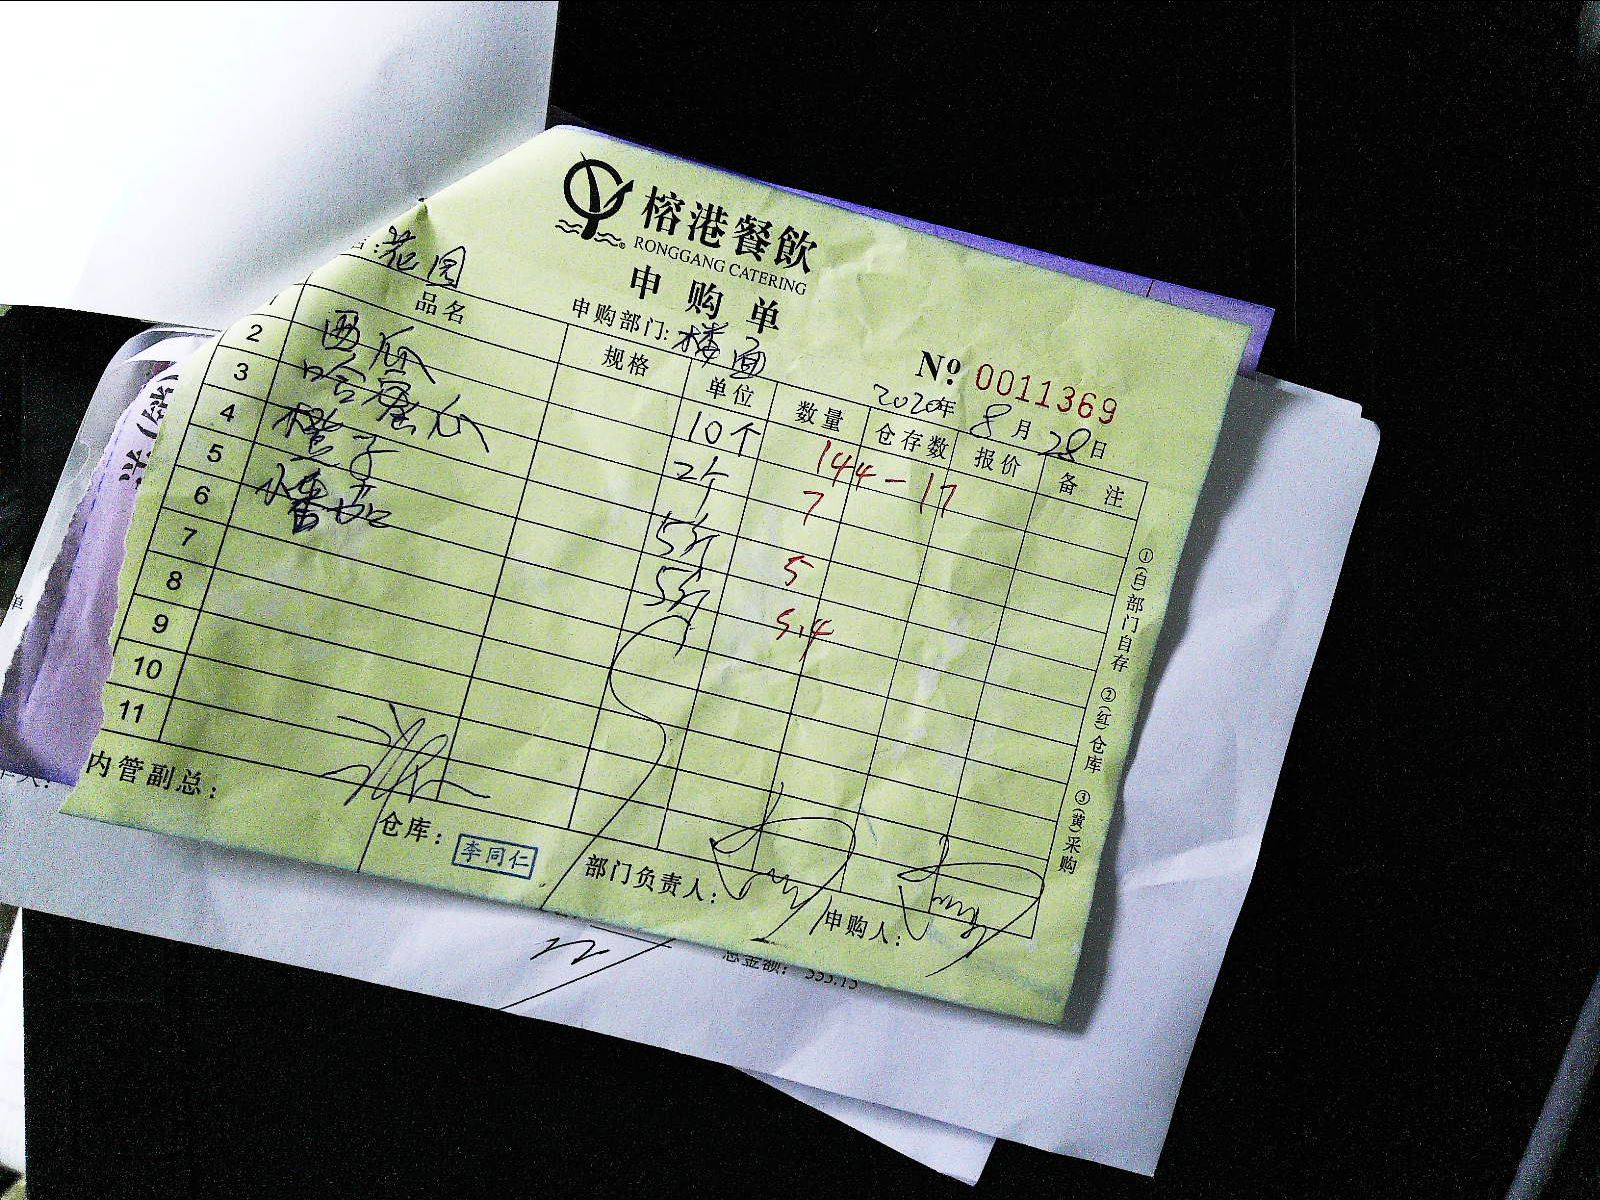 榕港餐飲
RONGGANG CATERING
申购单
花园
申购部门: 楼面
№ 0011369
2020年 8月 28日
品名 规格 单位 数量 仓存数 报价 备注
西瓜 10个 144-17
2 哈蜜瓜 2个 7
3 橙子 5斤 5
4 小番茄 5斤 5.4
5
6
7
8
9
10
11
①(白)部门自存 ②(红)仓库 ③(黄)采购
内管副总:
仓库: 李同仁
部门负责人:
申购人:
总金额: 555.15